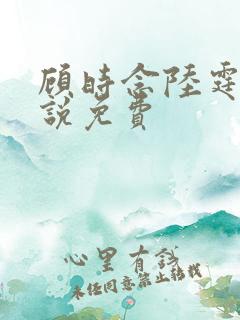 顾时念陆霆
說免費
心里有试
未经同意禁止转载